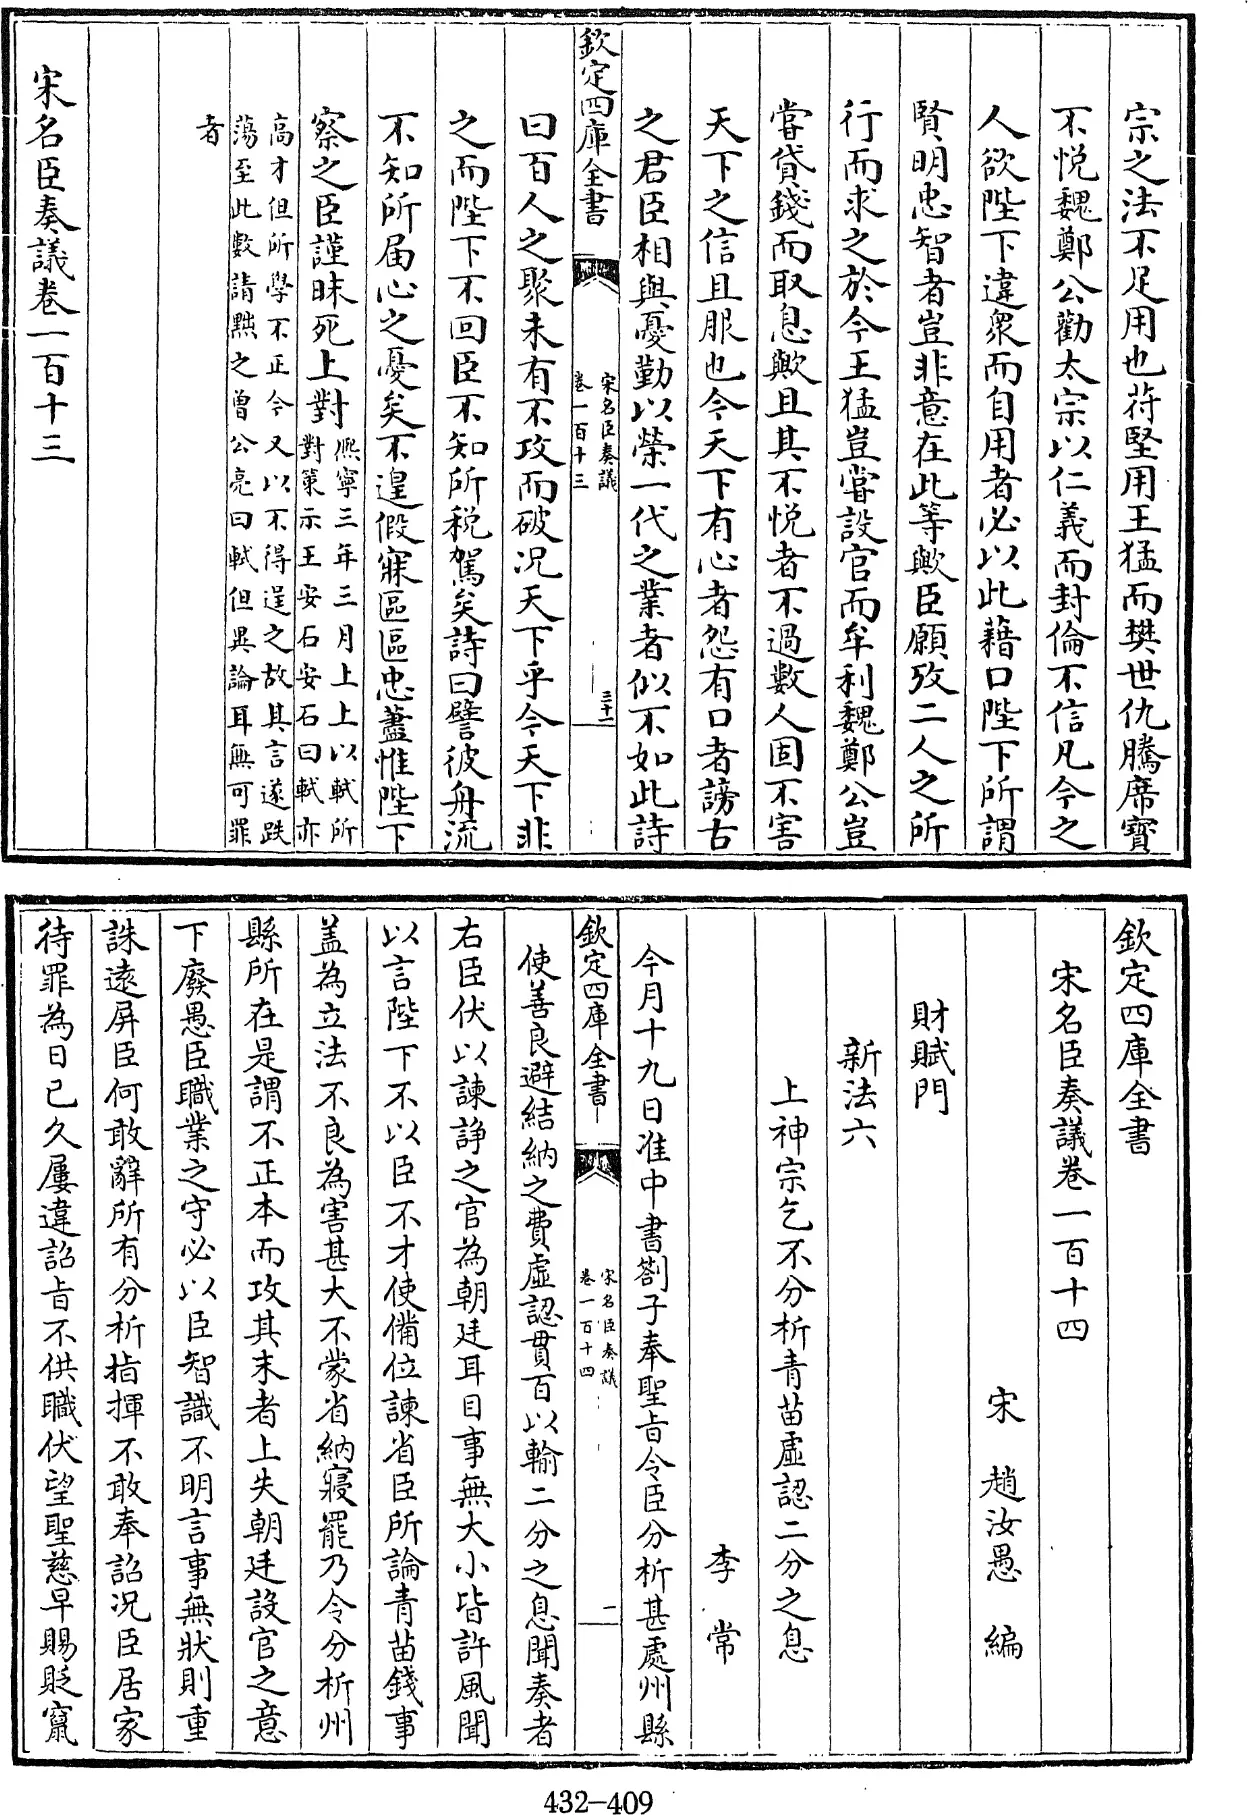 宗之法不足用也苻堅用王猛而樊世仇騰席寳
不悅魏鄭公勸太宗以仁義而封倫不信凡今之
人欲陛下違衆而自用者必以此藉口陛下所謂
賢明忠智者豈非意在此等歟臣願攷二人之所
行而求之於今王猛豈嘗設官而牟利魏鄭公豈
嘗貸錢而取息歟且其不悅者不過數人固不害
天下之信且服也今天下有心者怨有口者謗古
之君臣相與憂勤以榮一代之業者似不如此詩
欽定四庫全書
宋名臣奏議
卷一百十三
三十二
曰百人之聚未有不攻而破况天下乎今天下非
之而陛下不回臣不知所税駕矣詩曰譬彼舟流
不知所屆心之憂矣不遑假寐區區忠藎惟陛下
察之臣謹昧死上對
熈寧三年三月上上以軾所
對策示王安石安石曰軾亦
高才但所學不正今又以不得逞之故其言遂跌
蕩至此數請黜之曽公亮曰軾但異論耳無可罪
者
宋名臣奏議卷一百十三
欽定四庫全書
宋名臣奏議卷一百十四
宋 趙汝愚 編
財賦門
新法六
上神宗乞不分析青苗虛認二分之息
李常
今月十九日准中書劄子奉聖旨令臣分析甚處州縣
欽定四庫全書
宋名臣奏議
卷一百十四
一
使善良避結納之費虛認貫百以輸二分之息聞奏者
右臣伏以諫諍之官為朝廷耳目事無大小皆許風聞
以言陛下不以臣不才使備位諫省臣所論青苗錢事
盖為立法不良為害甚大不蒙省納寢罷乃令分析州
縣所在是謂不正本而攻其末者上失朝廷設官之意
下廢愚臣職業之守必以臣智識不明言事無狀則重
誅遠屏臣何敢辭所有分析指揮不敢奉詔况臣居家
待罪為日已久屢違詔旨不供職伏望聖慈早賜貶竄
432-409